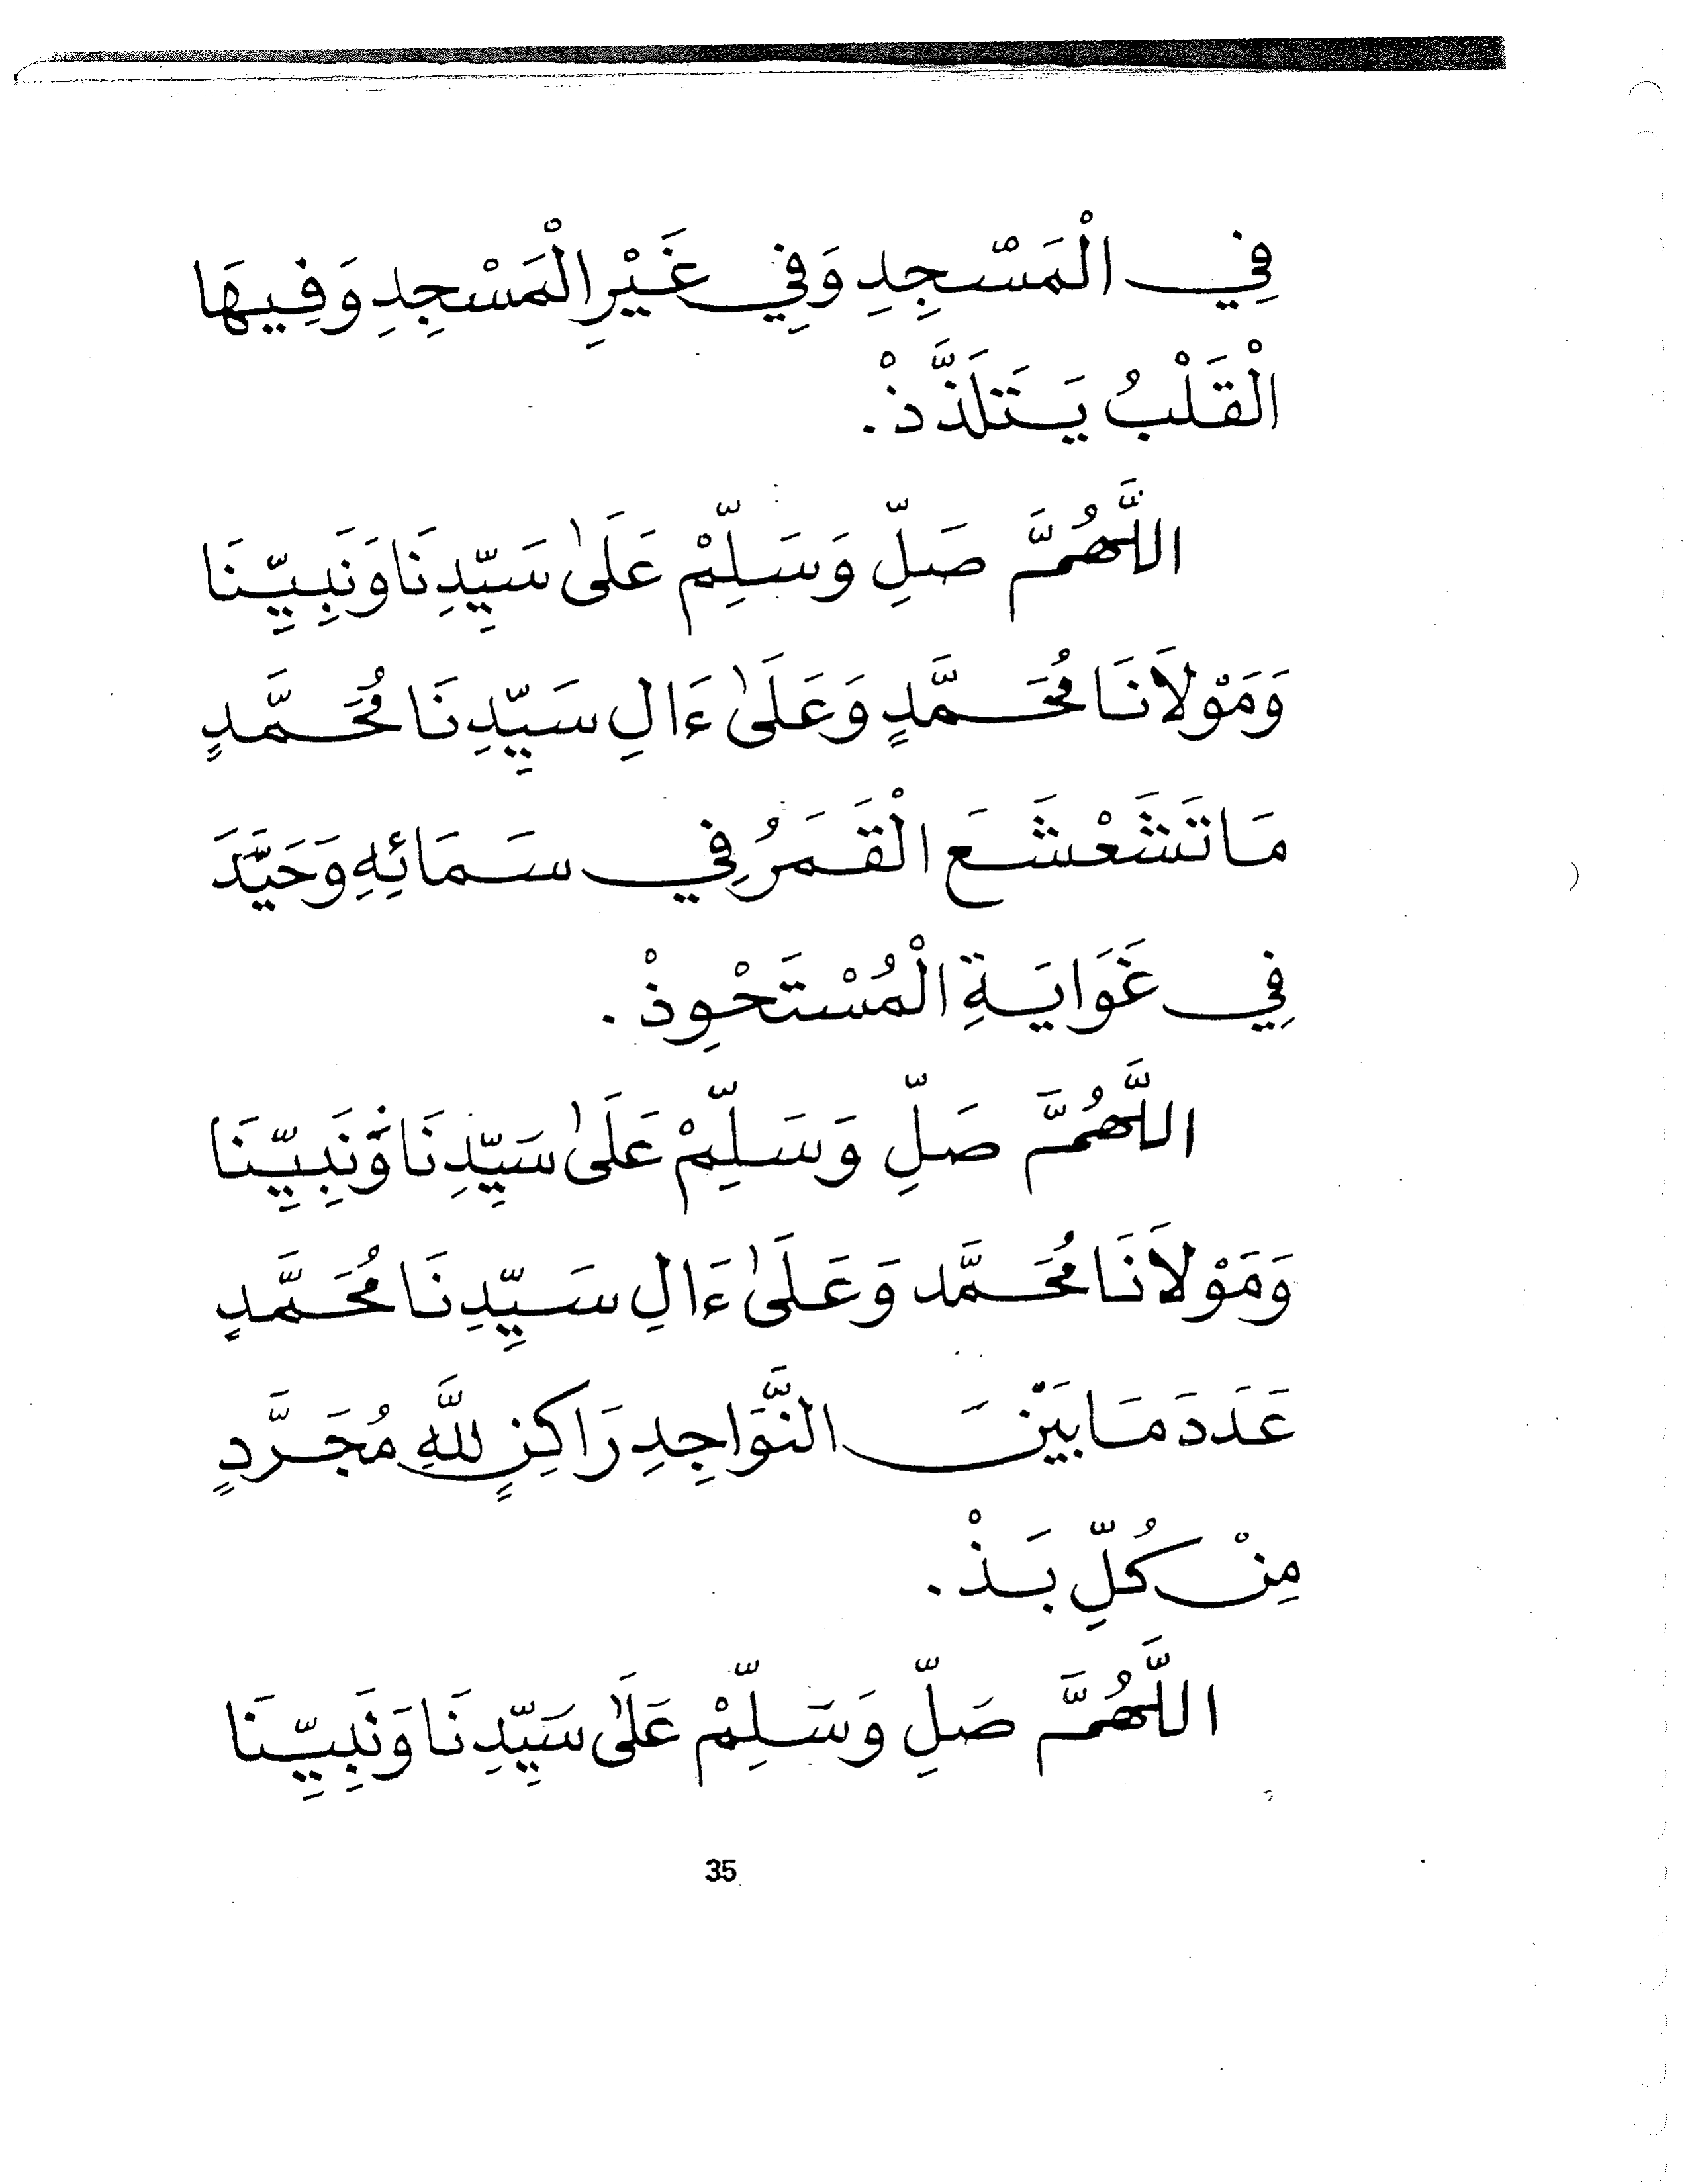 فِي الْمَسْجِدِ وَفِي غَيْرِ الْمَسْجِدِ وَفِيهَا
الْقَلْبُ يَتَلَذَّذْ.
اللَّهُمَّ صَلِّ وَسَلِّمْ عَلَىٰ سَيِّدِنَا وَنَبِيِّنَا
وَمَوْلَانَا مُحَمَّدٍ وَعَلَىٰ ءَالِ سَيِّدِنَا مُحَمَّدٍ
مَا تَشَعْشَعَ الْقَمَرُ فِي سَمَائِهِ وَحَيَّدَ
فِي غَوَايَةِ الْمُسْتَحْوِذْ.
اللَّهُمَّ صَلِّ وَسَلِّمْ عَلَىٰ سَيِّدِنَا وَنَبِيِّنَا
وَمَوْلَانَا مُحَمَّد وَعَلَىٰ ءَالِ سَيِّدِنَا مُحَمَّدٍ
عَدَدَ مَا بَيْنَ النَّوَاجِدِ رَاكِنٍ لِلَّهِ مُجَرَّدٍ
مِنْ كُلِّ بَذْ.
اللَّهُمَّ صَلِّ وَسَلِّمْ عَلَىٰ سَيِّدِنَا وَنَبِيِّنَا
35